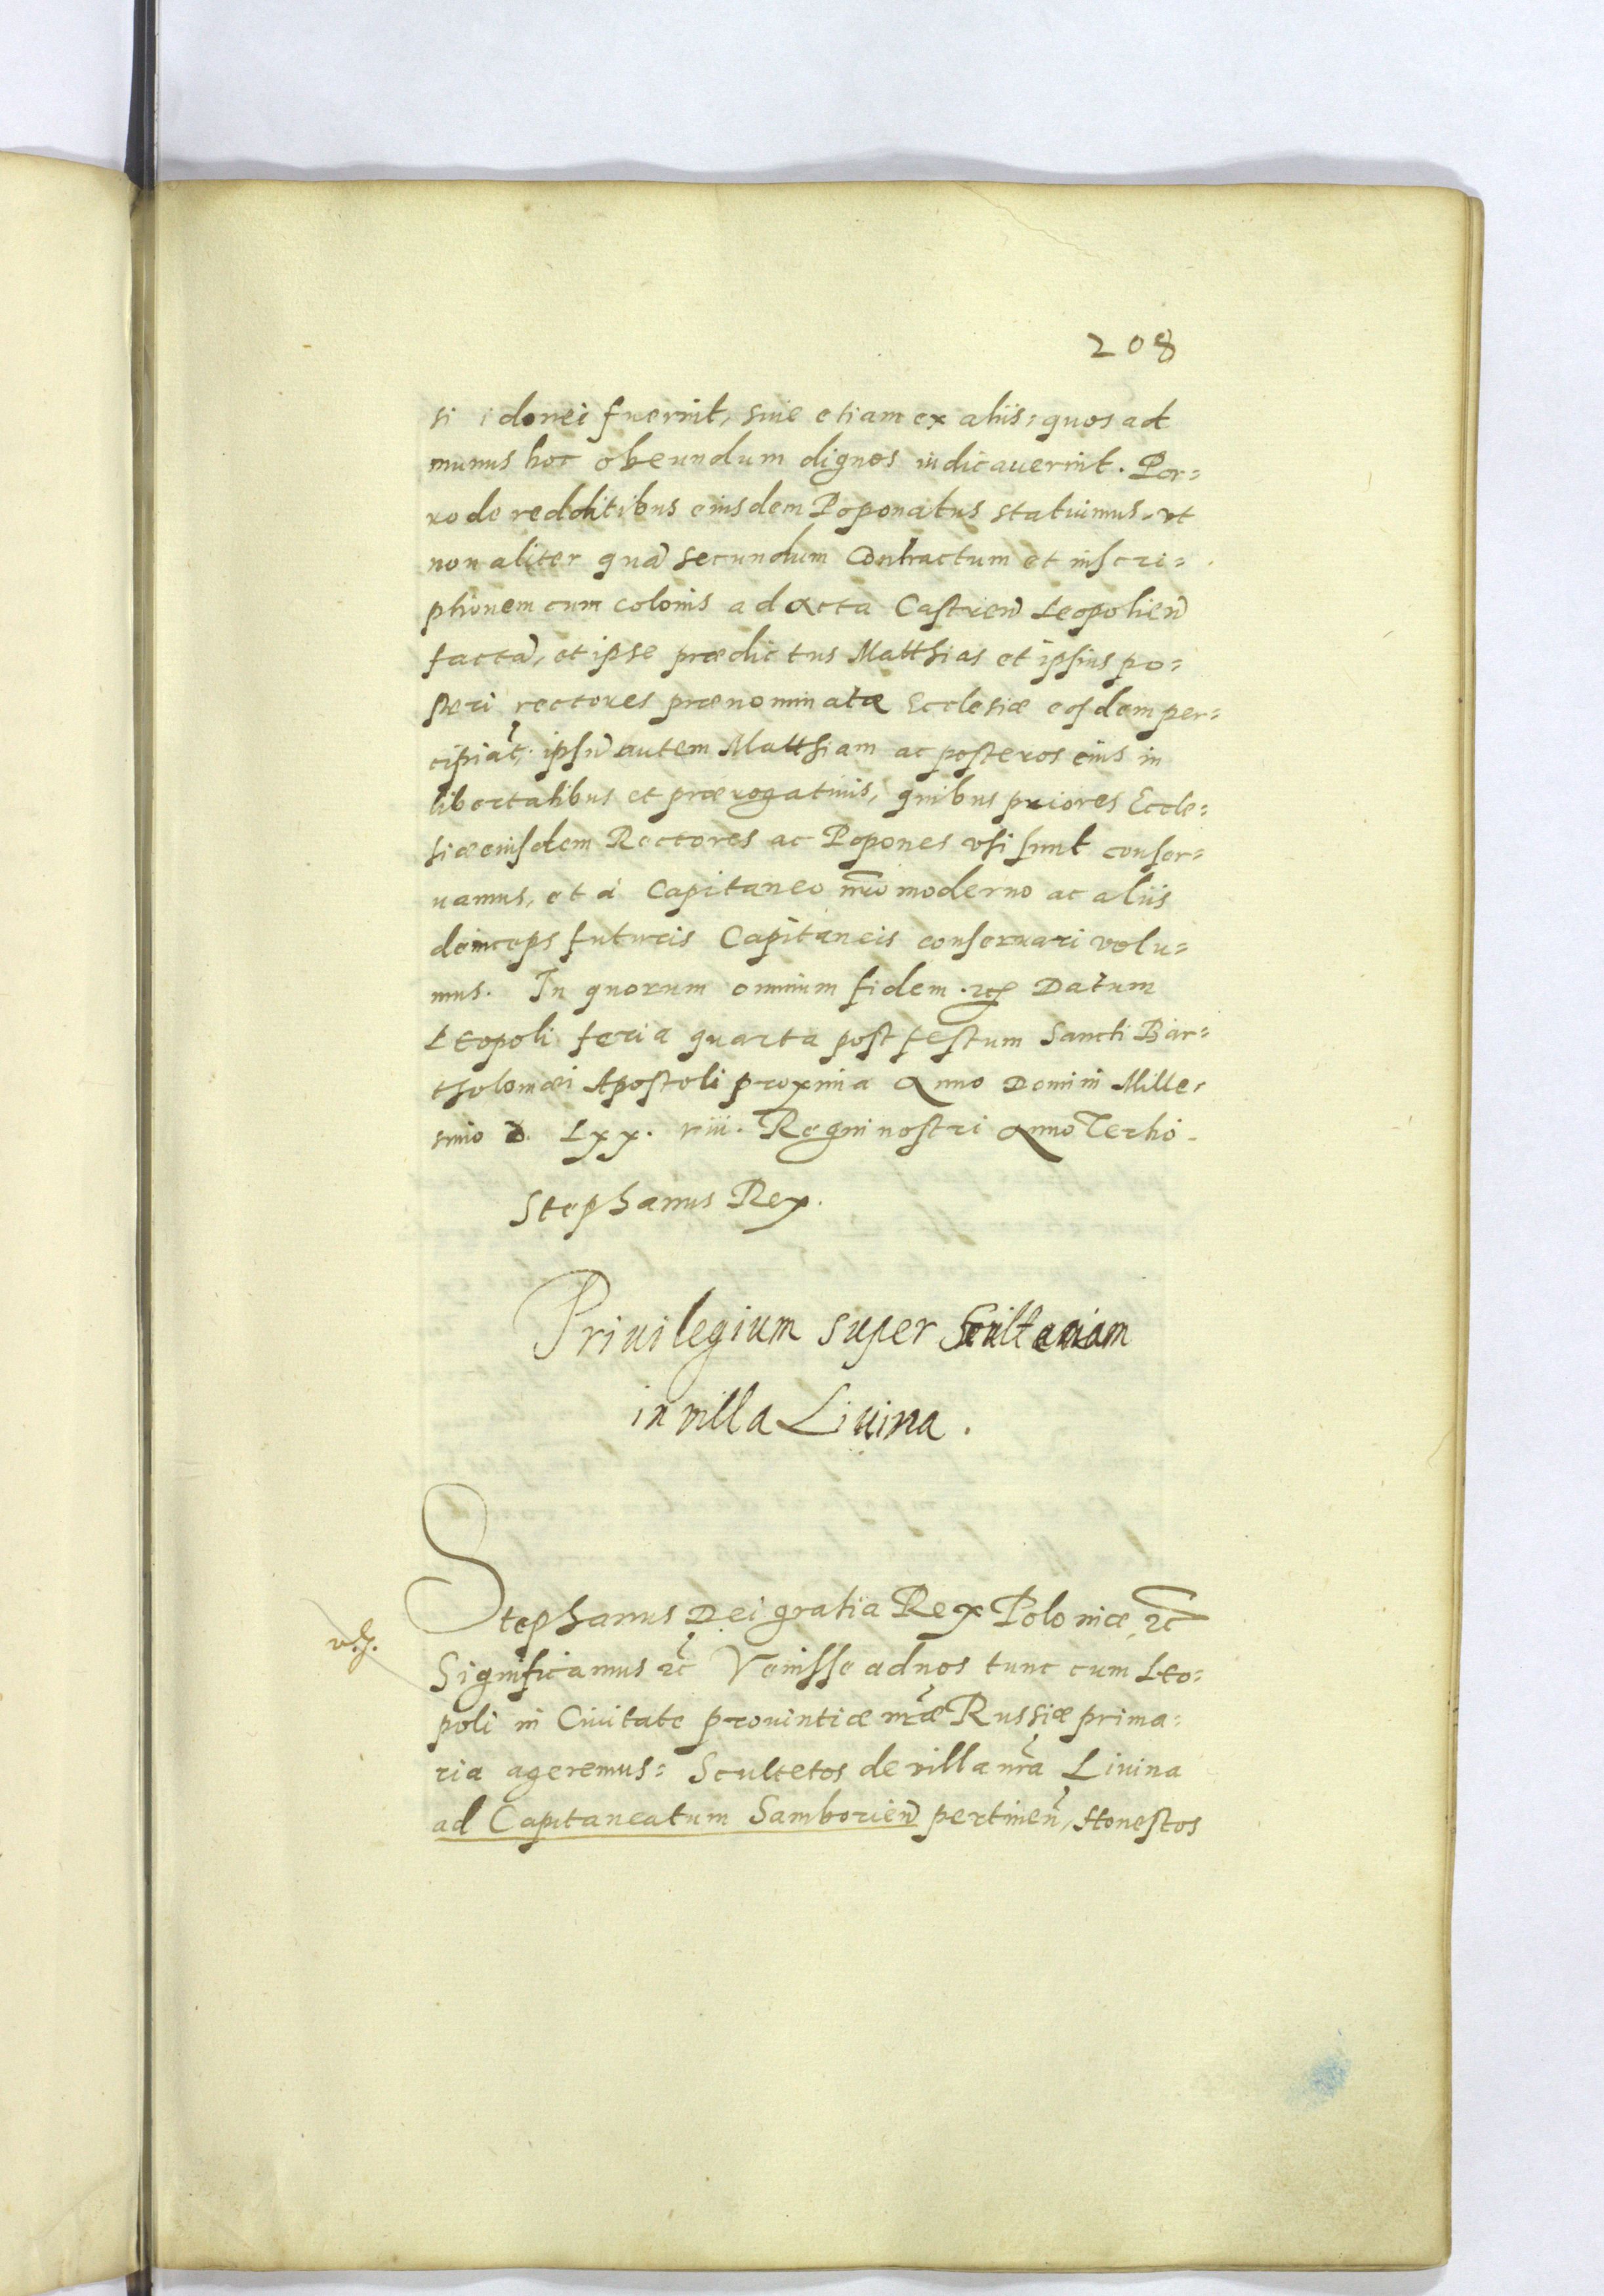 208
si idonei fuerint, siue etiam ex aliis, quos ad
munus hoc obeundum dignos iudicauerint. Por=
ro de redditibus eiusdem Poponatus statuimus, vt
non aliter quã secundum Contractum et inscri=
ptionem cum colonis ad Acta Castrień Leopolień
factã, et ipse prædictus Matthias et ipsius po=
steri rectores prænominatæ Ecclesiæ eosdem per=
cipiãt, ipsũ autem Matthiam ac posteros eius in
libertatibus et prærogatiuis, quibus priores Eccle=
siæ eiusdem Rectores ac Popones vsi sunt conser=
uamus, et à Capitaneo nr̃o moderno ac aliis
deinceps futuris Capitaneis conseruari volu=
mus. In quorum omnium fidem. etc Datum
Leopoli feria quarta post festum Sancti Bar=
tholomæi Apostoli proxima Anno Domini Mille,
simo D. Lxx. viii. Regni nostri Anno Tertio.
Stephanus Rex.
Priuilegium super Scultetiam
in villa Liuina.
Stephanus Dei gratia Rex Poloniæ, etc
Significamus etc Venisse ad nos tunc cum Leo=
poli in Ciuitate prouintiæ nr̃æ Russiæ prima=
ria ageremus: Scultetos de villa nr̃a Liuina
ad Capitaneatum Samborień pertineñ, Honestos